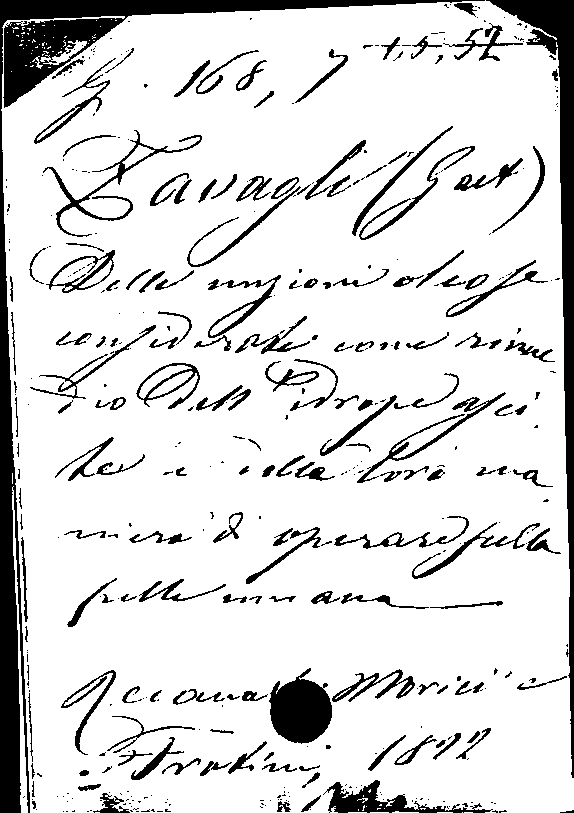 G. 168, 7 1,5,52
Zavagli (Gaet)
Delle unzioni oleose
considerate come rime-
dio Dell'Idrope asci
te e della loro ma
niera di operare sulla
pelle umana
Morici e
Fratini, 1822